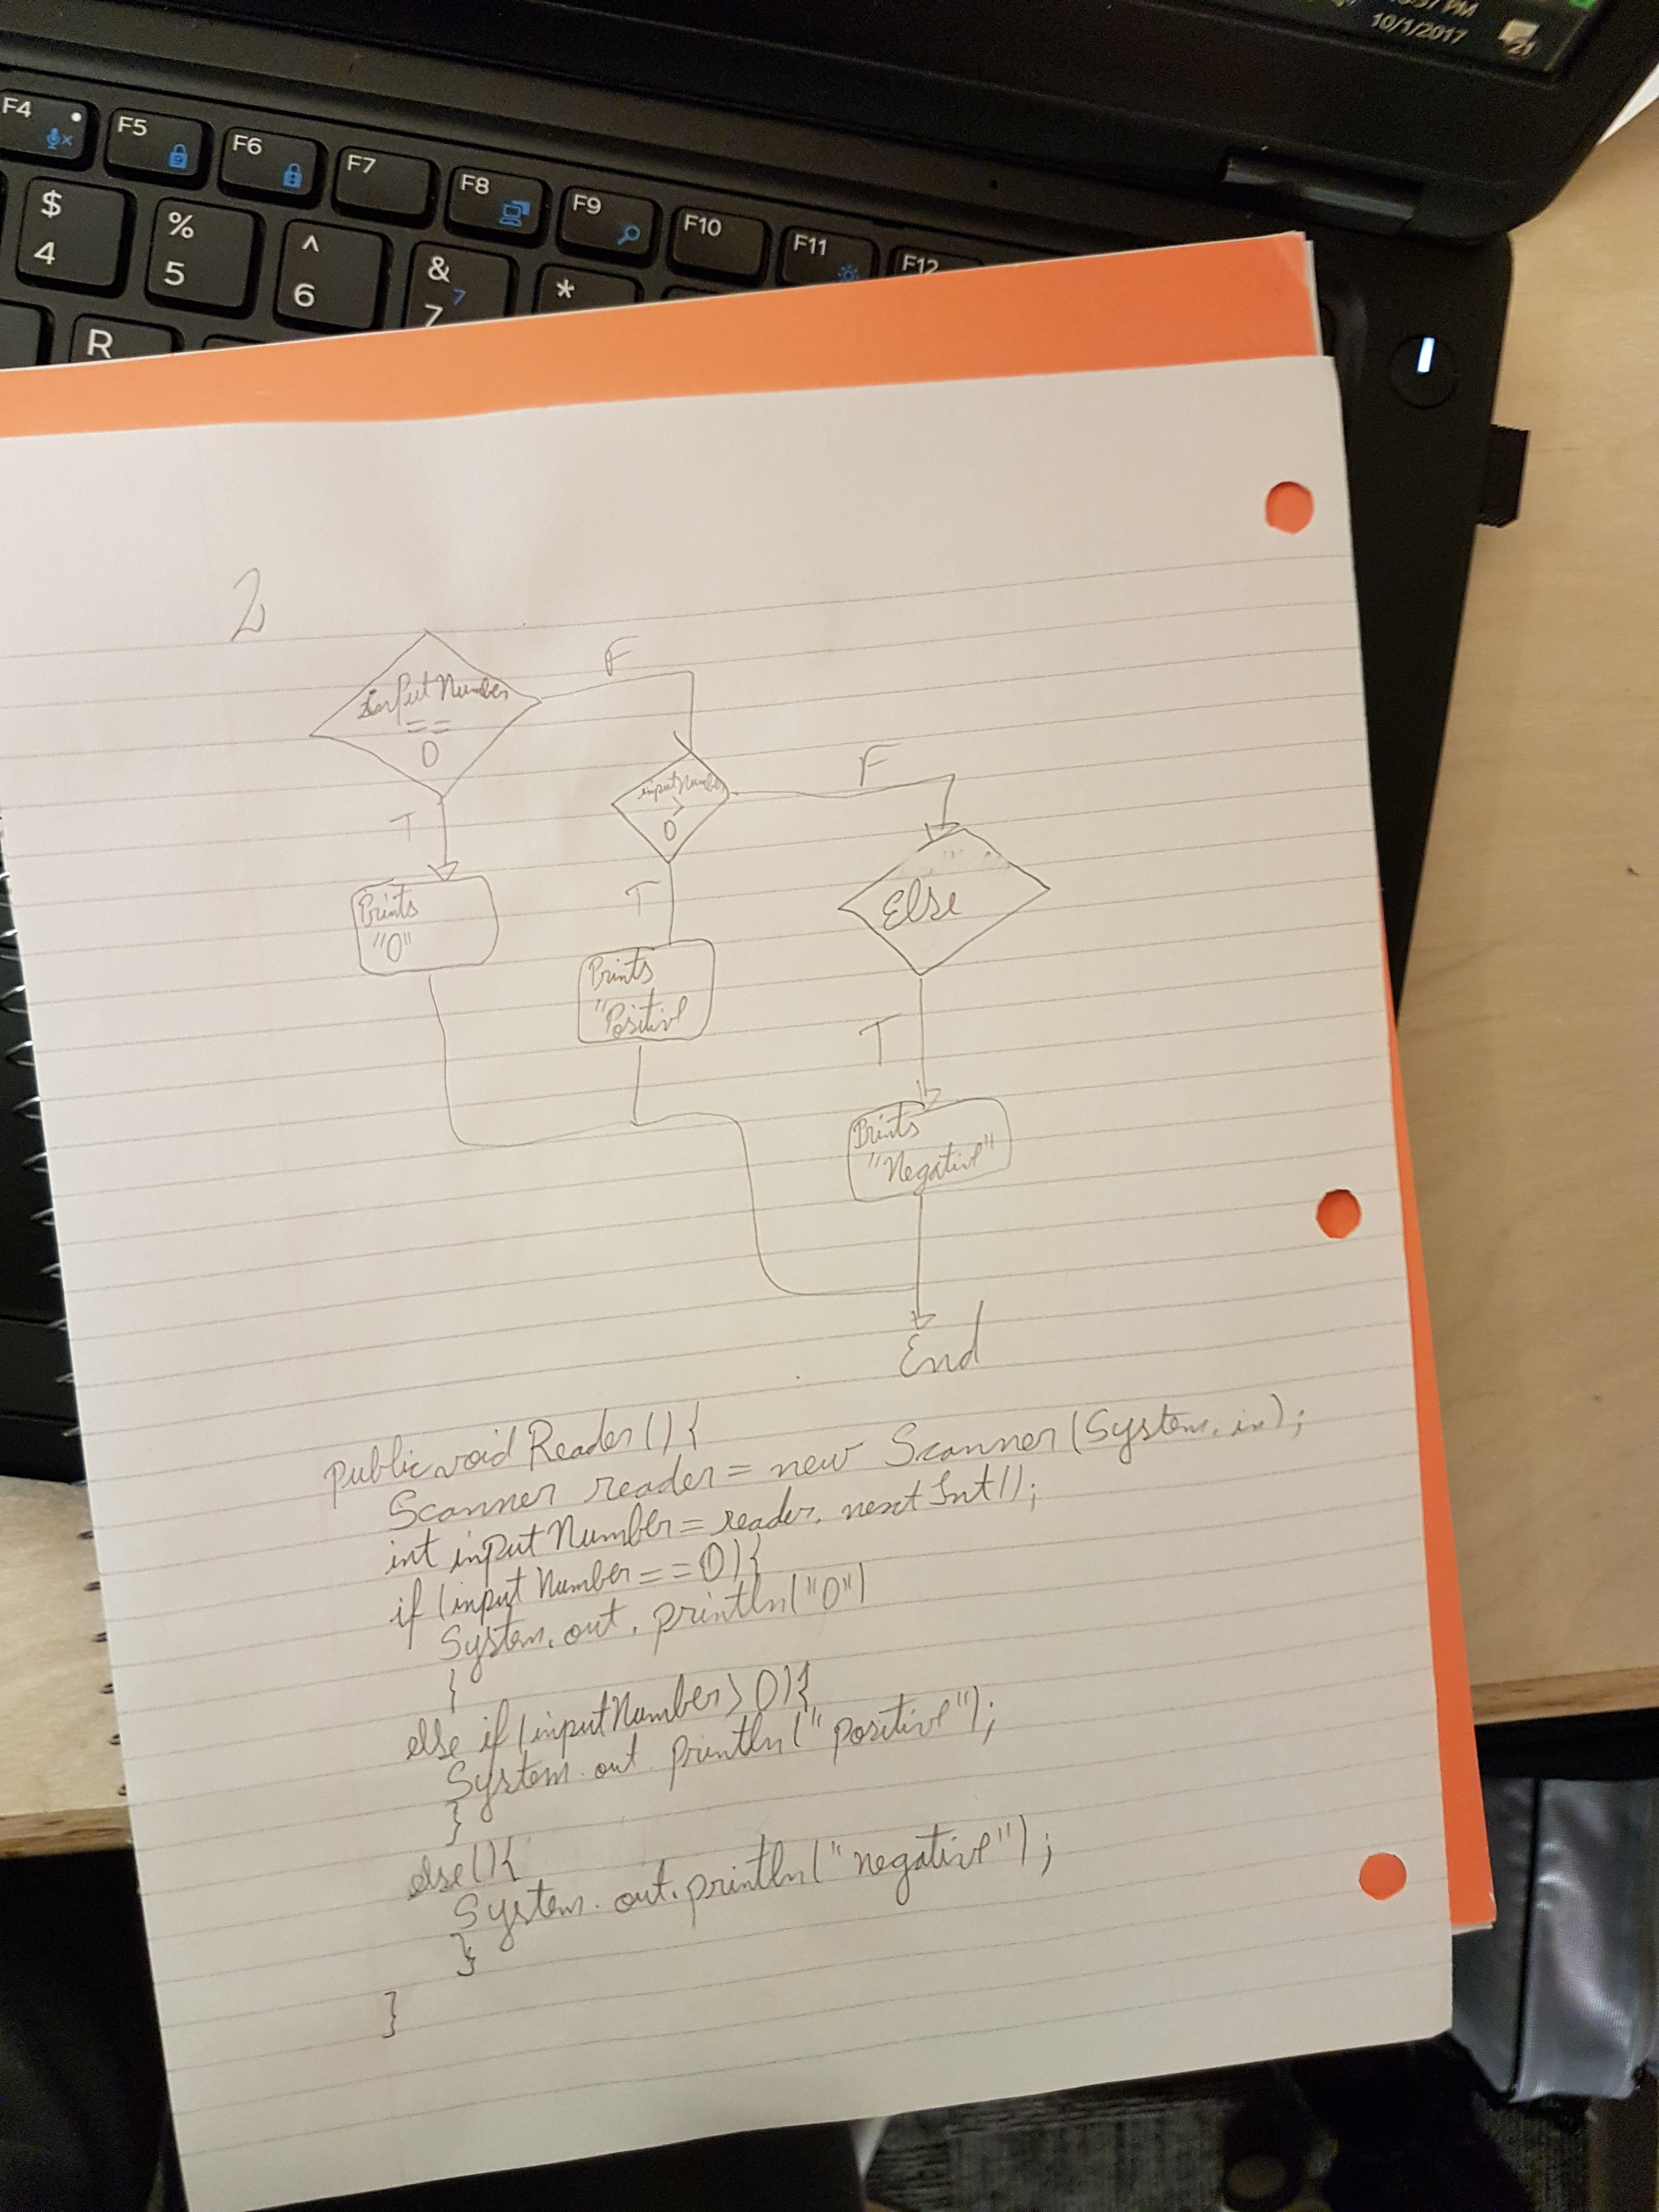 10/1/2017
21
F4
F5
F6
F7
F8
F9
F10
F11
F12
$
4
%
5
^
6
&
7
7
*
R
2
inputNumber
==
0
F
T
Prints
"0"
inputNumber
>
0
F
T
Prints
"Positive
Else
T
Prints
"Negative"
End
public void Reader(){
Scanner reader = new Scanner(System.in);
int inputNumber = reader.nextInt();
if (inputNumber == 0){
System.out.println("0")
}
else if (inputNumber > 0){
System.out println("positive");
}
else(){
System.out.println("negative");
}
}